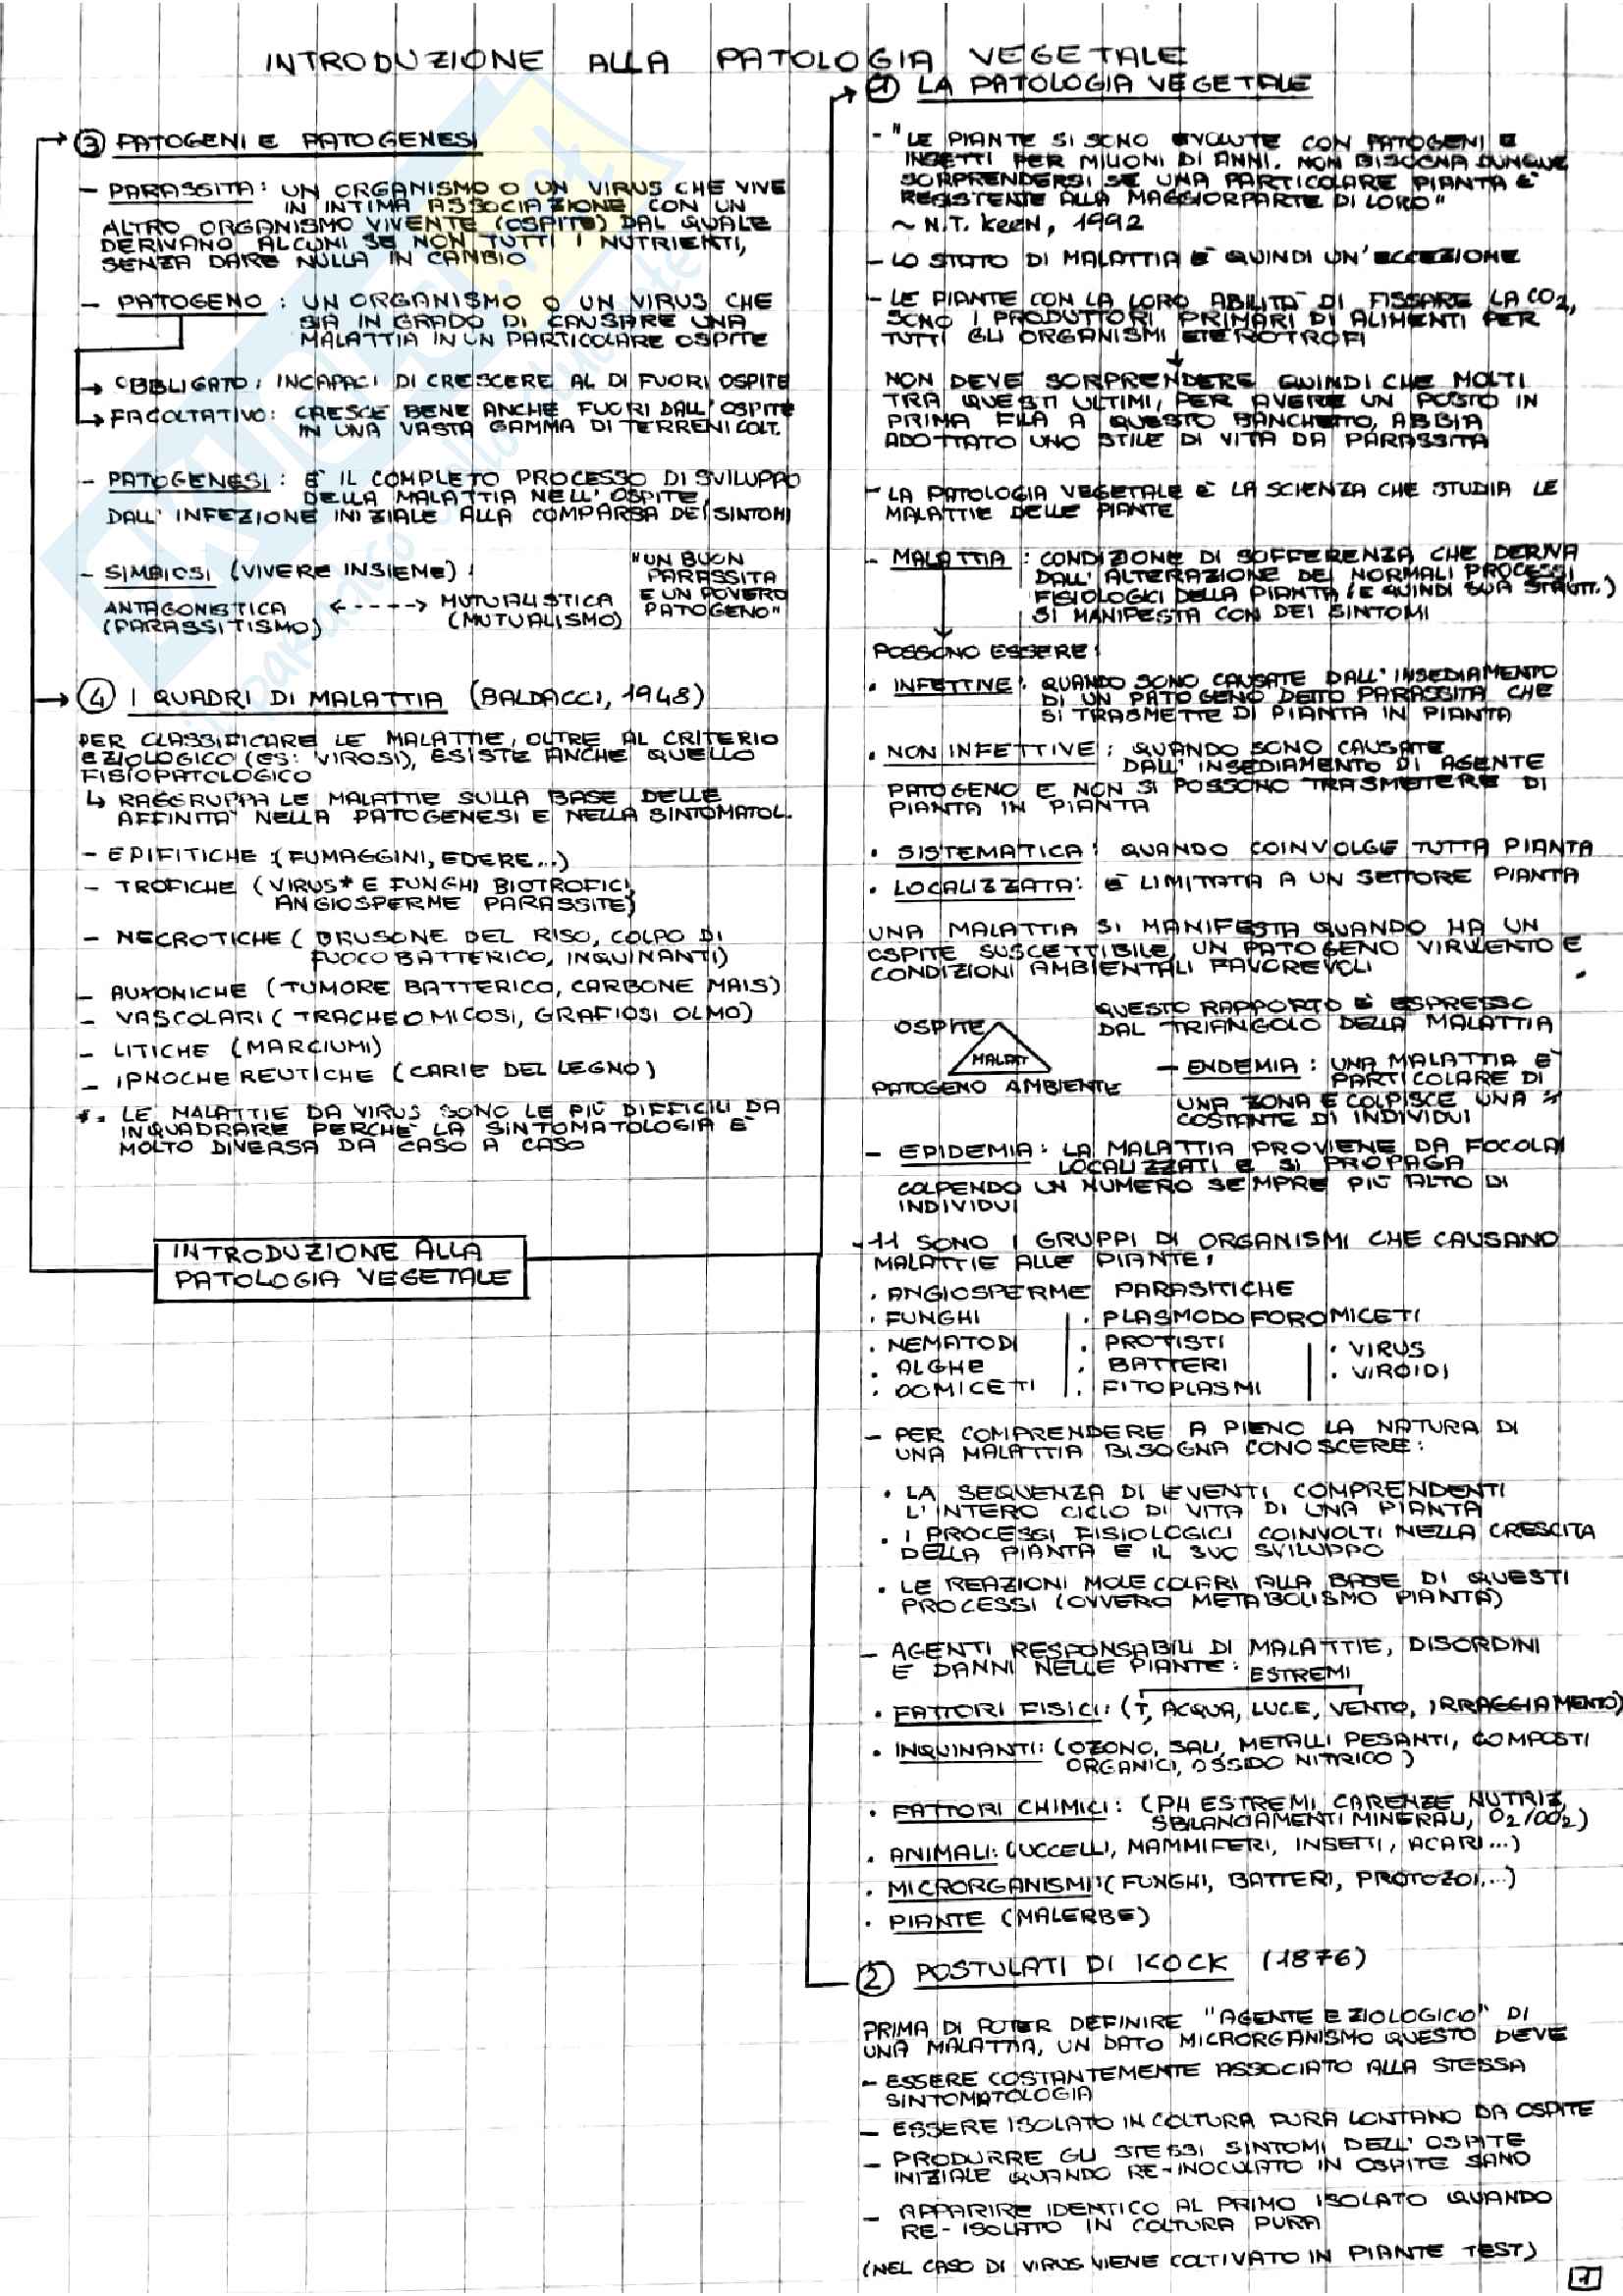 INTRODUZIONE ALLA PATOLOGIA VEGETALE
① LA PATOLOGIA VEGETALE
- "LE PIANTE SI SONO EVOLUTE CON PATOGENI E
INSETTI PER MILIONI DI ANNI. NON BISOGNA DUNQUE
SORPRENDERSI SE UNA PARTICOLARE PIANTA E'
RESISTENTE ALLA MAGGIORPARTE DI LORO"
~ N.T. KEEN, 1992
- LO STATO DI MALATTIA È QUINDI UN'ECCEZIONE
- LE PIANTE CON LA LORO ABILITA' DI FISSARE LA CO2,
SONO I PRODUTTORI PRIMARI DI ALIMENTI PER
TUTTI GLI ORGANISMI ETEROTROFI
NON DEVE SORPRENDERE QUINDI CHE MOLTI
TRA QUESTI ULTIMI, PER AVERE UN POSTO IN
PRIMA FILA A QUESTO BANCHETTO, ABBIA
ADOTTATO UNO STILE DI VITA DA PARASSITA
- LA PATOLOGIA VEGETALE È LA SCIENZA CHE STUDIA LE
MALATTIE DELLE PIANTE
- MALATTIA : CONDIZIONE DI SOFFERENZA CHE DERIVA
DALL'ALTERAZIONE DEI NORMALI PROCESSI
FISIOLOGICI DELLA PIANTA (E QUINDI SUA STRUTT.)
SI MANIFESTA CON DEI SINTOMI
POSSONO ESSERE:
. INFETTIVE: QUANDO SONO CAUSATE DALL'INSEDIAMENTO
DI UN PATOGENO DETTO PARASSITA CHE
SI TRASMETTE DI PIANTA IN PIANTA
. NON INFETTIVE: QUANDO SONO CAUSATE
DALL'INSEDIAMENTO DI AGENTE
PATOGENO E NON SI POSSONO TRASMETTERE DI
PIANTA IN PIANTA
. SISTEMATICA: QUANDO COINVOLGE TUTTA PIANTA
. LOCALIZZATA: È LIMITATA A UN SETTORE PIANTA
UNA MALATTIA SI MANIFESTA QUANDO HA UN
OSPITE SUSCETTIBILE, UN PATOGENO VIRULENTO E
CONDIZIONI AMBIENTALI FAVOREVOLI
QUESTO RAPPORTO È ESPRESSO
DAL TRIANGOLO DELLA MALATTIA
OSPITE
MALAT
PATOGENO AMBIENTE
- ENDEMIA : UNA MALATTIA E'
PARTICOLARE DI
UNA ZONA E COLPISCE UNA %
COSTANTE DI INDIVIDUI
- EPIDEMIA : LA MALATTIA PROVIENE DA FOCOLAI
LOCALIZZATI E SI PROPAGA
COLPENDO UN NUMERO SEMPRE PIÙ ALTO DI
INDIVIDUI
- 11 SONO I GRUPPI DI ORGANISMI CHE CAUSANO
MALATTIE ALLE PIANTE:
. ANGIOSPERME PARASITICHE
. FUNGHI
. NEMATODI
. ALGHE
. OOMICETI
. PLASMODOFOROMICETI
. PROTISTI
. BATTERI
. FITOPLASMI
. VIRUS
. VIROIDI
- PER COMPRENDERE A PIENO LA NATURA DI
UNA MALATTIA BISOGNA CONOSCERE:
. LA SEQUENZA DI EVENTI COMPRENDENTI
L'INTERO CICLO DI VITA DI UNA PIANTA
. I PROCESSI FISIOLOGICI COINVOLTI NELLA CRESCITA
DELLA PIANTA E IL SUO SVILUPPO
. LE REAZIONI MOLECOLARI ALLA BASE DI QUESTI
PROCESSI (OVVERO METABOLISMO PIANTA)
- AGENTI RESPONSABILI DI MALATTIE, DISORDINI
E DANNI NELLE PIANTE:
ESTREMI
. FATTORI FISICI: (T, ACQUA, LUCE, VENTO, IRRAGGIAMENTO)
. INQUINANTI: (OZONO, SALI, METALLI PESANTI, COMPOSTI
ORGANICI, OSSIDO NITRICO)
. FATTORI CHIMICI: (PH ESTREMI CARENZE NUTRIZ,
SBILANCIAMENTI MINERALI, O2/CO2)
. ANIMALI: (UCCELLI, MAMMIFERI, INSETTI, ACARI...)
. MICRORGANISMI: (FUNGHI, BATTERI, PROTOZOI,...)
. PIANTE (MALERBE)
② POSTULATI DI KOCK (1876)
PRIMA DI POTER DEFINIRE "AGENTE EZIOLOGICO" DI
UNA MALATTIA, UN DATO MICRORGANISMO QUESTO DEVE
- ESSERE COSTANTEMENTE ASSOCIATO ALLA STESSA
SINTOMATOLOGIA
- ESSERE ISOLATO IN COLTURA PURA LONTANO DA OSPITE
- PRODURRE GLI STESSI SINTOMI DELL'OSPITE
INIZIALE QUANDO RE-INOCULATO IN OSPITE SANO
- APPARIRE IDENTICO AL PRIMO ISOLATO QUANDO
RE-ISOLATO IN COLTURA PURA
(NEL CASO DI VIRUS VIENE COLTIVATO IN PIANTE TEST)
③ PATOGENI E PATOGENESI
- PARASSITA: UN ORGANISMO O UN VIRUS CHE VIVE
IN INTIMA ASSOCIAZIONE CON UN
ALTRO ORGANISMO VIVENTE (OSPITE) DAL QUALE
DERIVANO ALCUNI SE NON TUTTI I NUTRIENTI,
SENZA DARE NULLA IN CAMBIO
- PATOGENO : UN ORGANISMO O UN VIRUS CHE
SIA IN GRADO DI CAUSARE UNA
MALATTIA IN UN PARTICOLARE OSPITE
→ OBBLIGATO: INCAPACI DI CRESCERE AL DI FUORI OSPITE
→ FACOLTATIVO: CRESCE BENE ANCHE FUORI DALL'OSPITE
IN UNA VASTA GAMMA DI TERRENI COLT.
- PATOGENESI : È IL COMPLETO PROCESSO DI SVILUPPO
DELLA MALATTIA NELL'OSPITE,
DALL'INFEZIONE INIZIALE ALLA COMPARSA DEI SINTOMI
- SIMBIOSI (VIVERE INSIEME) :
ANTAGONISTICA <----> MUTUALISTICA
(PARASSITISMO) (MUTUALISMO)
"UN BUON
PARASSITA
E UN POVERO
PATOGENO"
④ I QUADRI DI MALATTIA (BALDACCI, 1948)
PER CLASSIFICARE LE MALATTIE, OLTRE AL CRITERIO
EZIOLOGICO (ES: VIROSI), ESISTE ANCHE QUELLO
FISIOPATOLOGICO
↳ RAGGRUPPA LE MALATTIE SULLA BASE DELLE
AFFINITA' NELLA PATOGENESI E NELLA SINTOMATOL.
- EPIFITICHE :(FUMAGGINI, EDERE...)
- TROFICHE (VIRUS* E FUNGHI BIOTROFICI,
ANGIOSPERME PARASSITE)
- NECROTICHE ( BRUSONE DEL RISO, COLPO DI
FUOCO BATTERICO, INQUINANTI)
- AUXONICHE (TUMORE BATTERICO, CARBONE MAIS)
- VASCOLARI ( TRACHEOMICOSI, GRAFIOSI OLMO)
- LITICHE (MARCIUMI)
- IPNOCHEREUTICHE ( CARIE DEL LEGNO)
*. LE MALATTIE DA VIRUS SONO LE PIÙ DIFFICILI DA
INQUADRARE PERCHE' LA SINTOMATOLOGIA E'
MOLTO DIVERSA DA CASO A CASO
INTRODUZIONE ALLA
PATOLOGIA VEGETALE
1